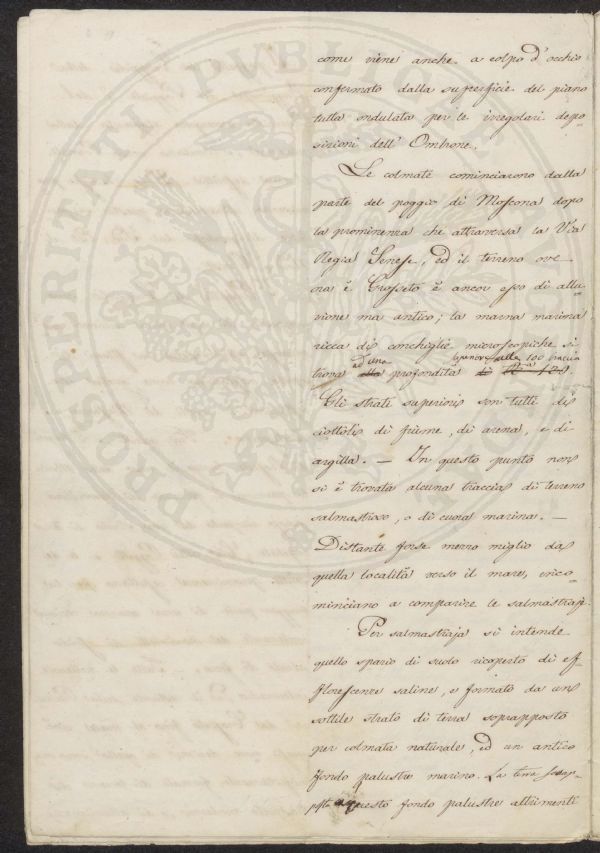 come viene anche a colpo d'occhio
confermato dalla superficie del piano
tutta ondulata per le irregolari depo-
sizioni dell'Ombrone.
Le colmate cominciarono dalla
parte del poggio di Moscona dopo
la prominenza che attraversa la Via
Regia Senese, ed il terreno ove
ora è Grosseto è ancor esso di allu-
vione ma antico; la marna marina
ricca di conchiglie microscopiche si
ad una superiore alle 100 braccia
trova alla profondità di
Gli strati superiori son tutti di
ciottoli di fiume, di arena, e di
argilla. — In questo punto non
si è trovata alcuna traccia di terreno
salmastroso, o di cuora marina. —
Distante forse mezzo miglio da
quella località verso il mare, inco-
minciano a comparire le salmastraje.
Per salmastraja si intende
quello spazio di suolo ricoperto di ef-
florescenze saline, e formato da un
sottile strato di terra soprapposto
per colmata naturale, ed un antico
fondo palustre marino. La terra soprap-
posta a questo fondo palustre altrimenti
PROSPERITATI PVBLICAE